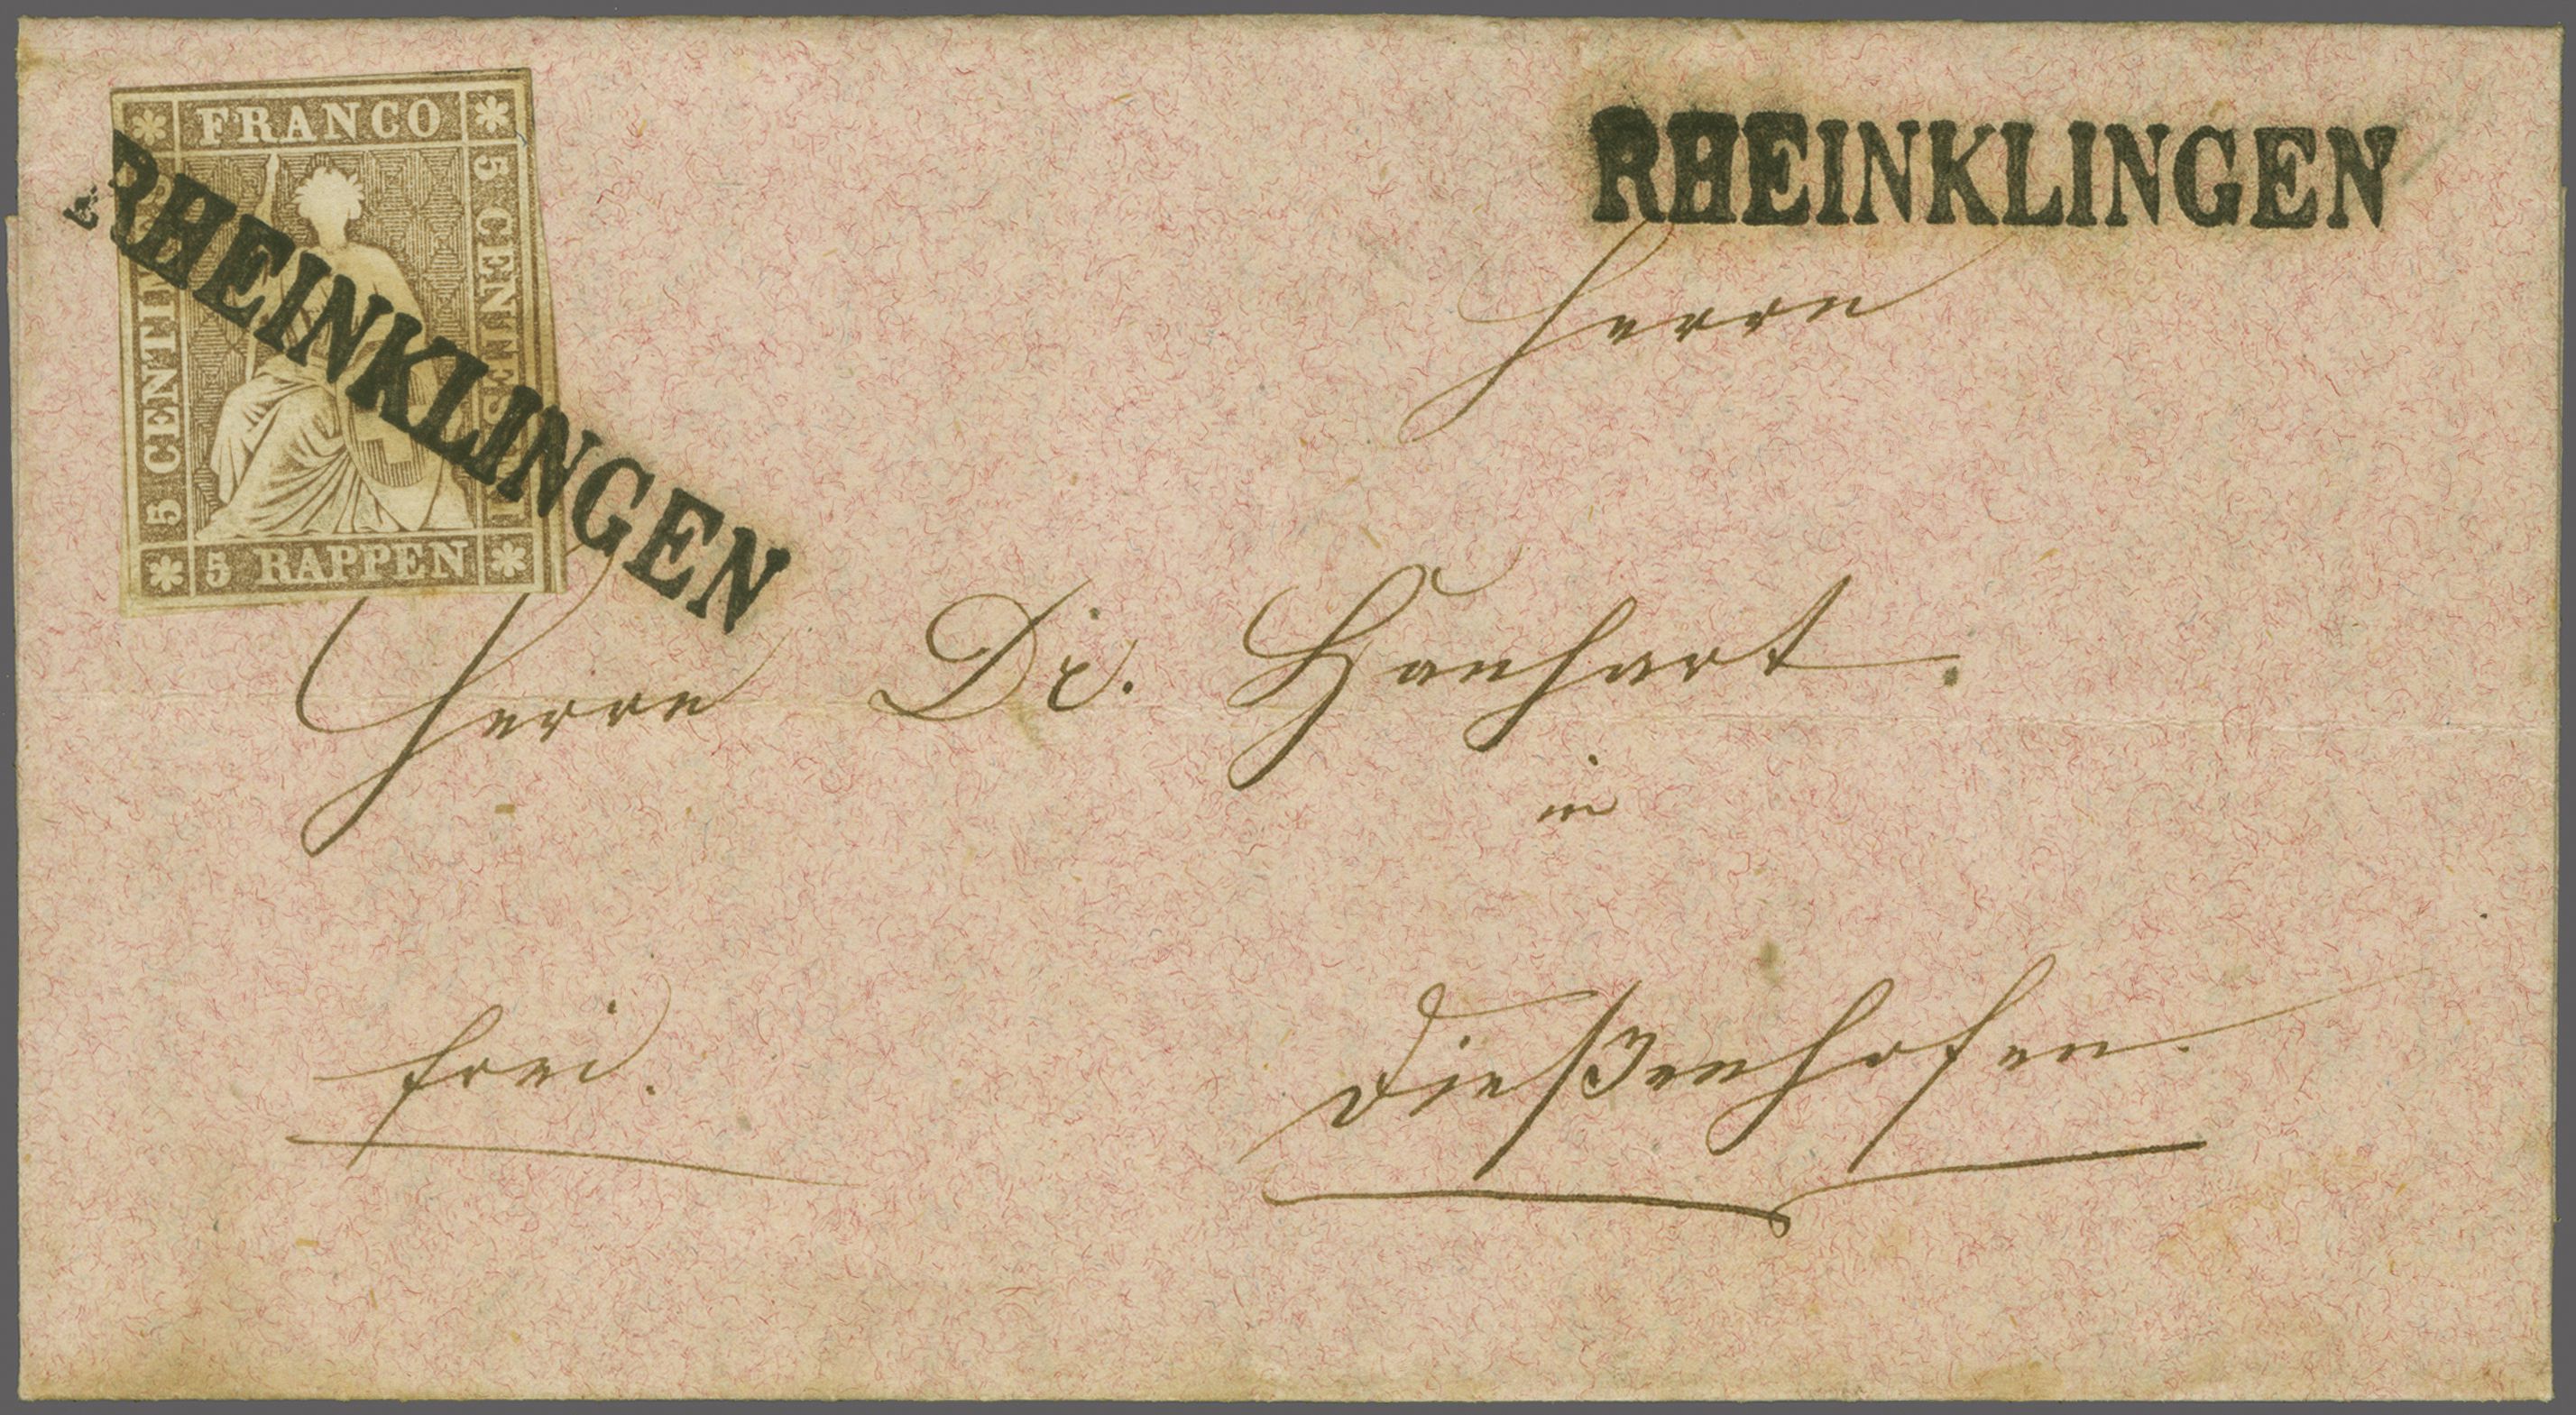 FRANCO
5 CENTIMES
5 CENTIMES
5 RAPPEN
RHEINKLINGEN
RHEINKLINGEN
Herrn
Herrn Dr. Hanhart.
in
frei.
Dießenhofen.